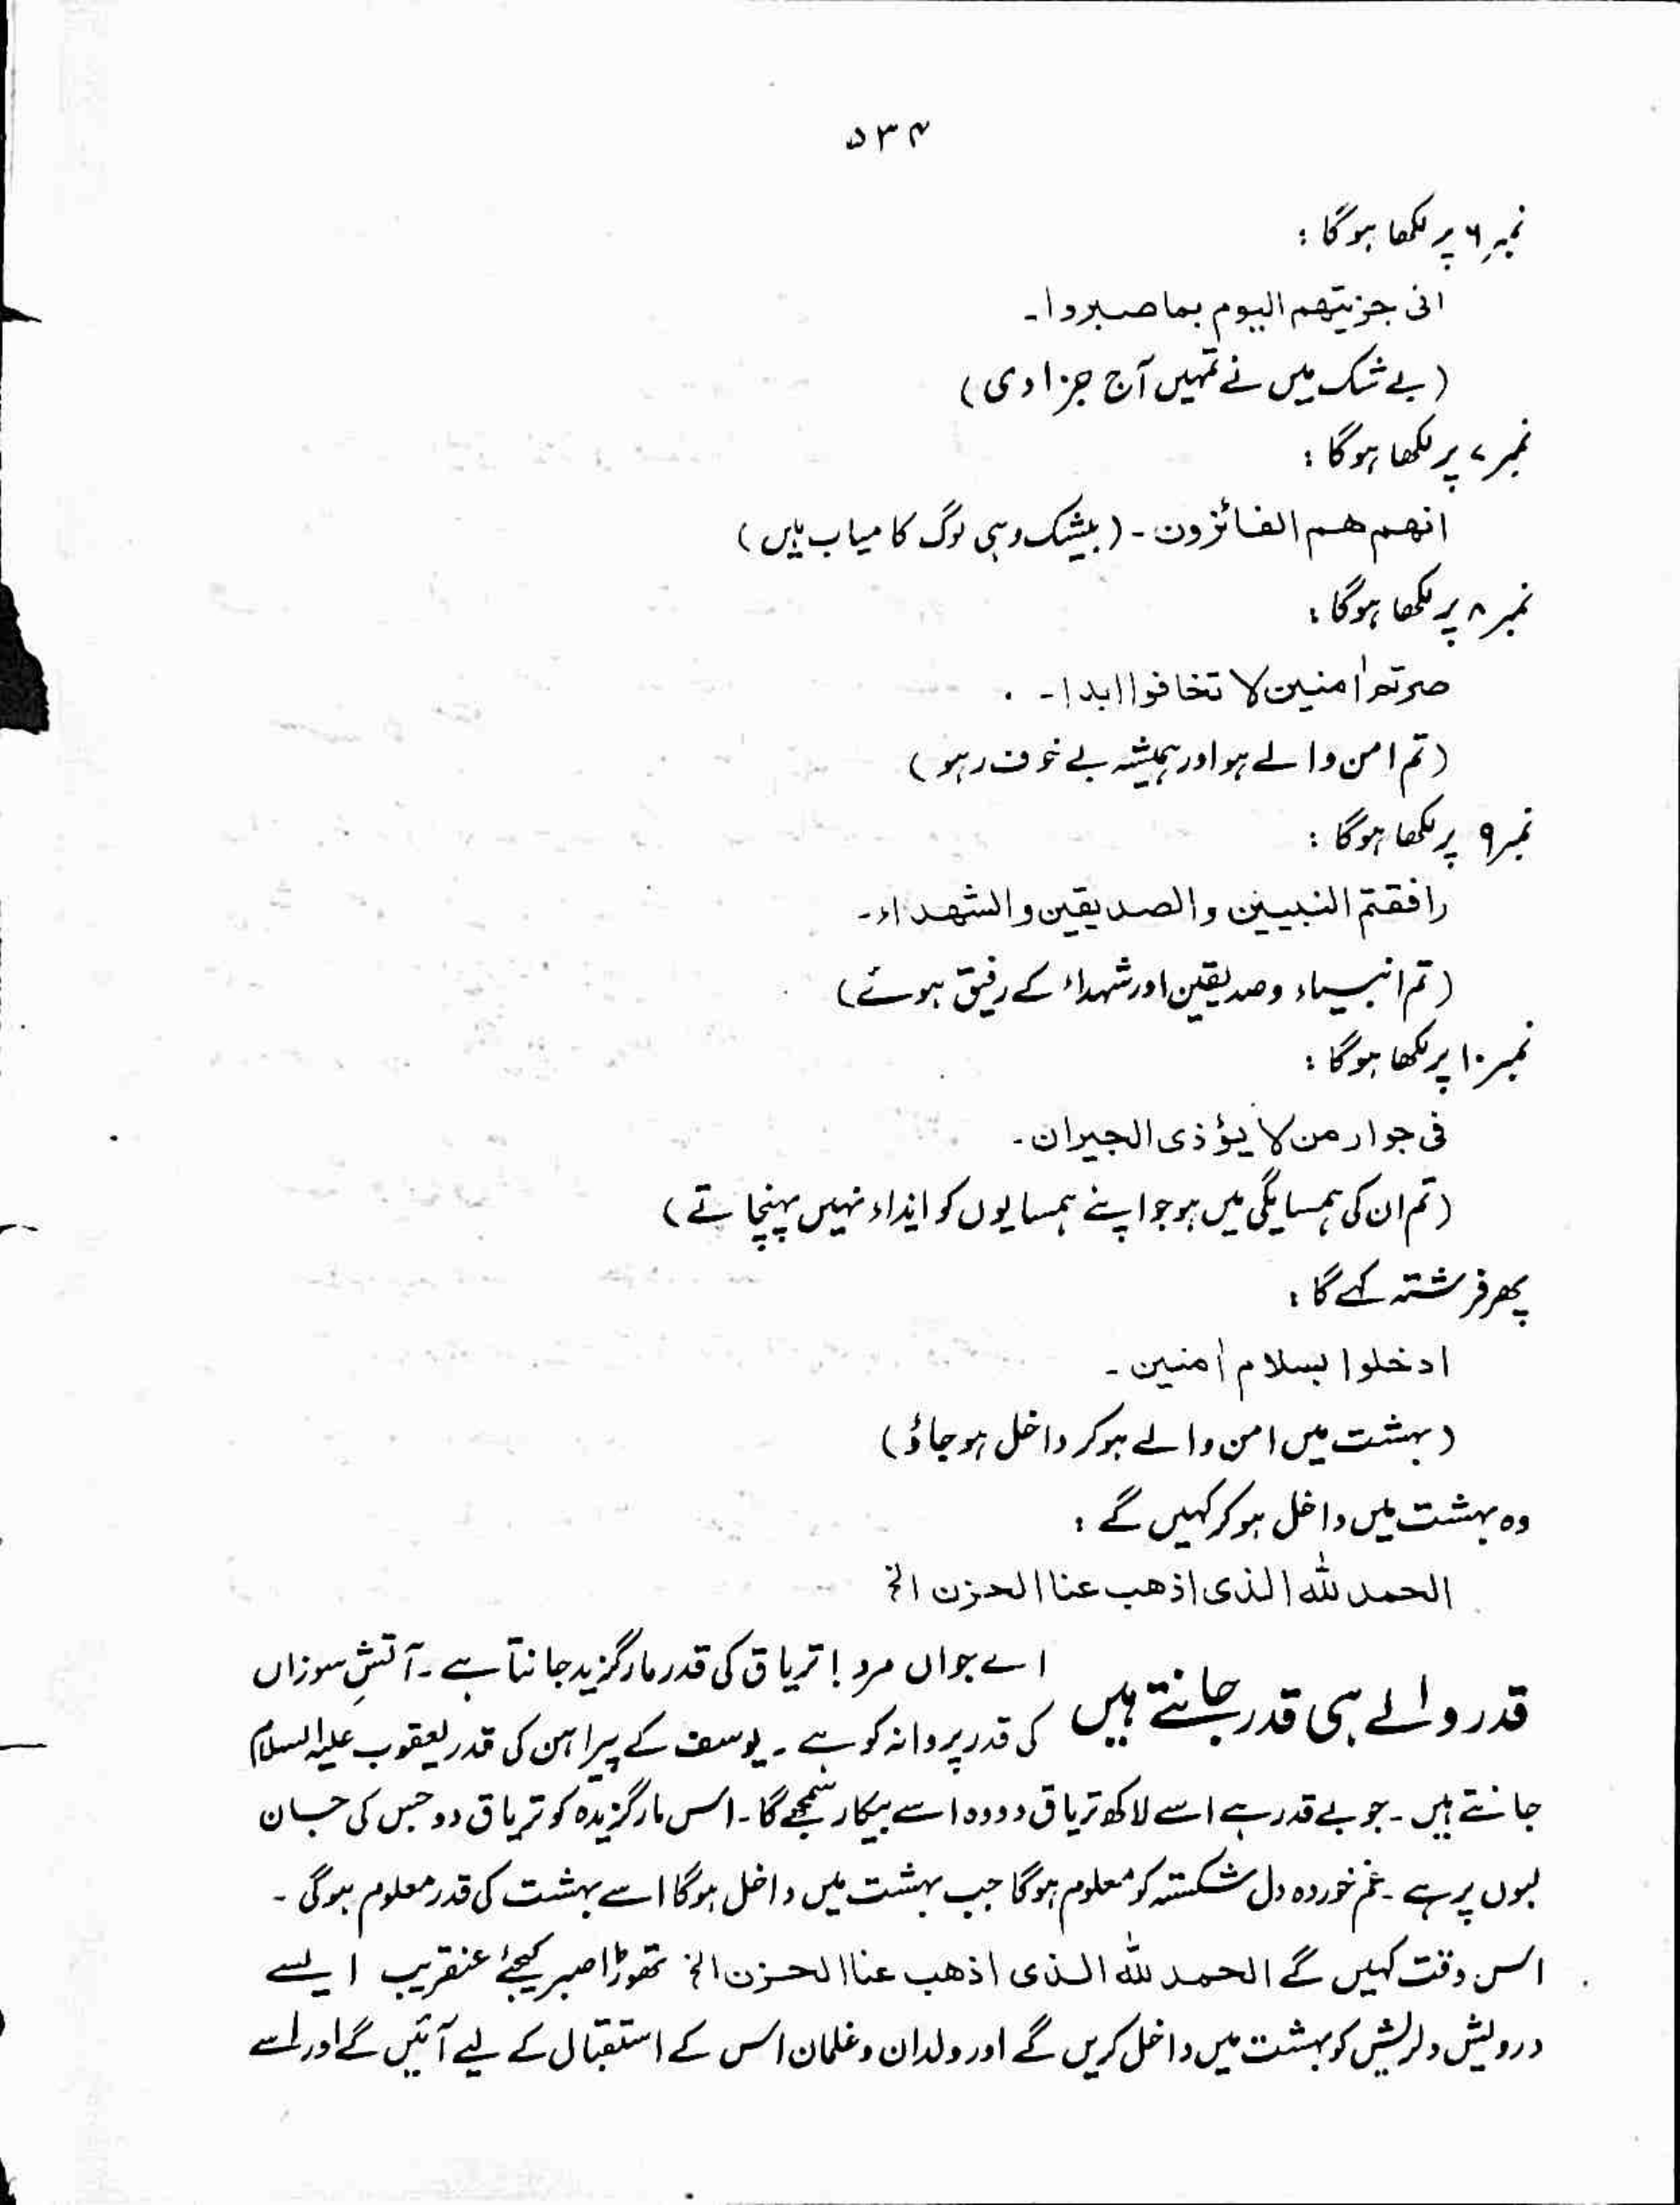 ۵۳۴
نمبر ۶ پر لکھا ہوگا :
انی جزیتھم الیوم بما صبروا۔
(بے شک میں نے تمہیں آج جزا دی)
نمبر ۷ پر لکھا ہوگا :
انھم ھم الفائزون۔ (بیشک وہی لوگ کامیاب ہیں)
نمبر ۸ پر لکھا ہوگا :
صرتم اٰمنین لا تخافوا ابدا۔
(تم امن والے ہو اور ہمیشہ بے خوف رہو)
نمبر ۹ پر لکھا ہوگا :
رافقتم النبیین والصدیقین والشھداء۔
(تم انبیاء و صدیقین اور شہداء کے رفیق ہوئے)
نمبر ۱۰ پر لکھا ہوگا :
فی جوار من لا یؤذی الجیران۔
(تم ان کی ہمسایگی میں ہو جو اپنے ہمسایوں کو ایذاء نہیں پہنچاتے)
پھر فرشتہ کہے گا :
ادخلوا بسلام اٰمنین۔
(بہشت میں امن والے ہو کر داخل ہو جاؤ)
وہ بہشت میں داخل ہو کر کہیں گے :
الحمد للہ الذی اذھب عنا الحزن الخ
قدر والے ہی قدر جانتے ہیں
اے جواں مرد ! تریاق کی قدر مارگزید جانتا ہے۔ آتشِ سوزاں
کی قدر پروانہ کو ہے۔ یوسف کے پیراہن کی قدر یعقوب علیہ السلام
جانتے ہیں۔ جو بے قدر ہے اسے لاکھ تریاق دو وہ اسے بیکار سمجھے گا۔ اس مارگزیدہ کو تریاق دو جس کی جان
لبوں پر ہے۔ غم خوردہ دل شکستہ کو معلوم ہوگا جب بہشت میں داخل ہوگا اسے بہشت کی قدر معلوم ہوگی۔
اس وقت کہیں گے الحمد للہ الذی اذھب عنا الحزن الخ تھوڑا صبر کیجئے عنقریب ایسے
درویش دلریش کو بہشت میں داخل کریں گے اور ولدان و غلمان اس کے استقبال کے لیے آئیں گے اور اسے